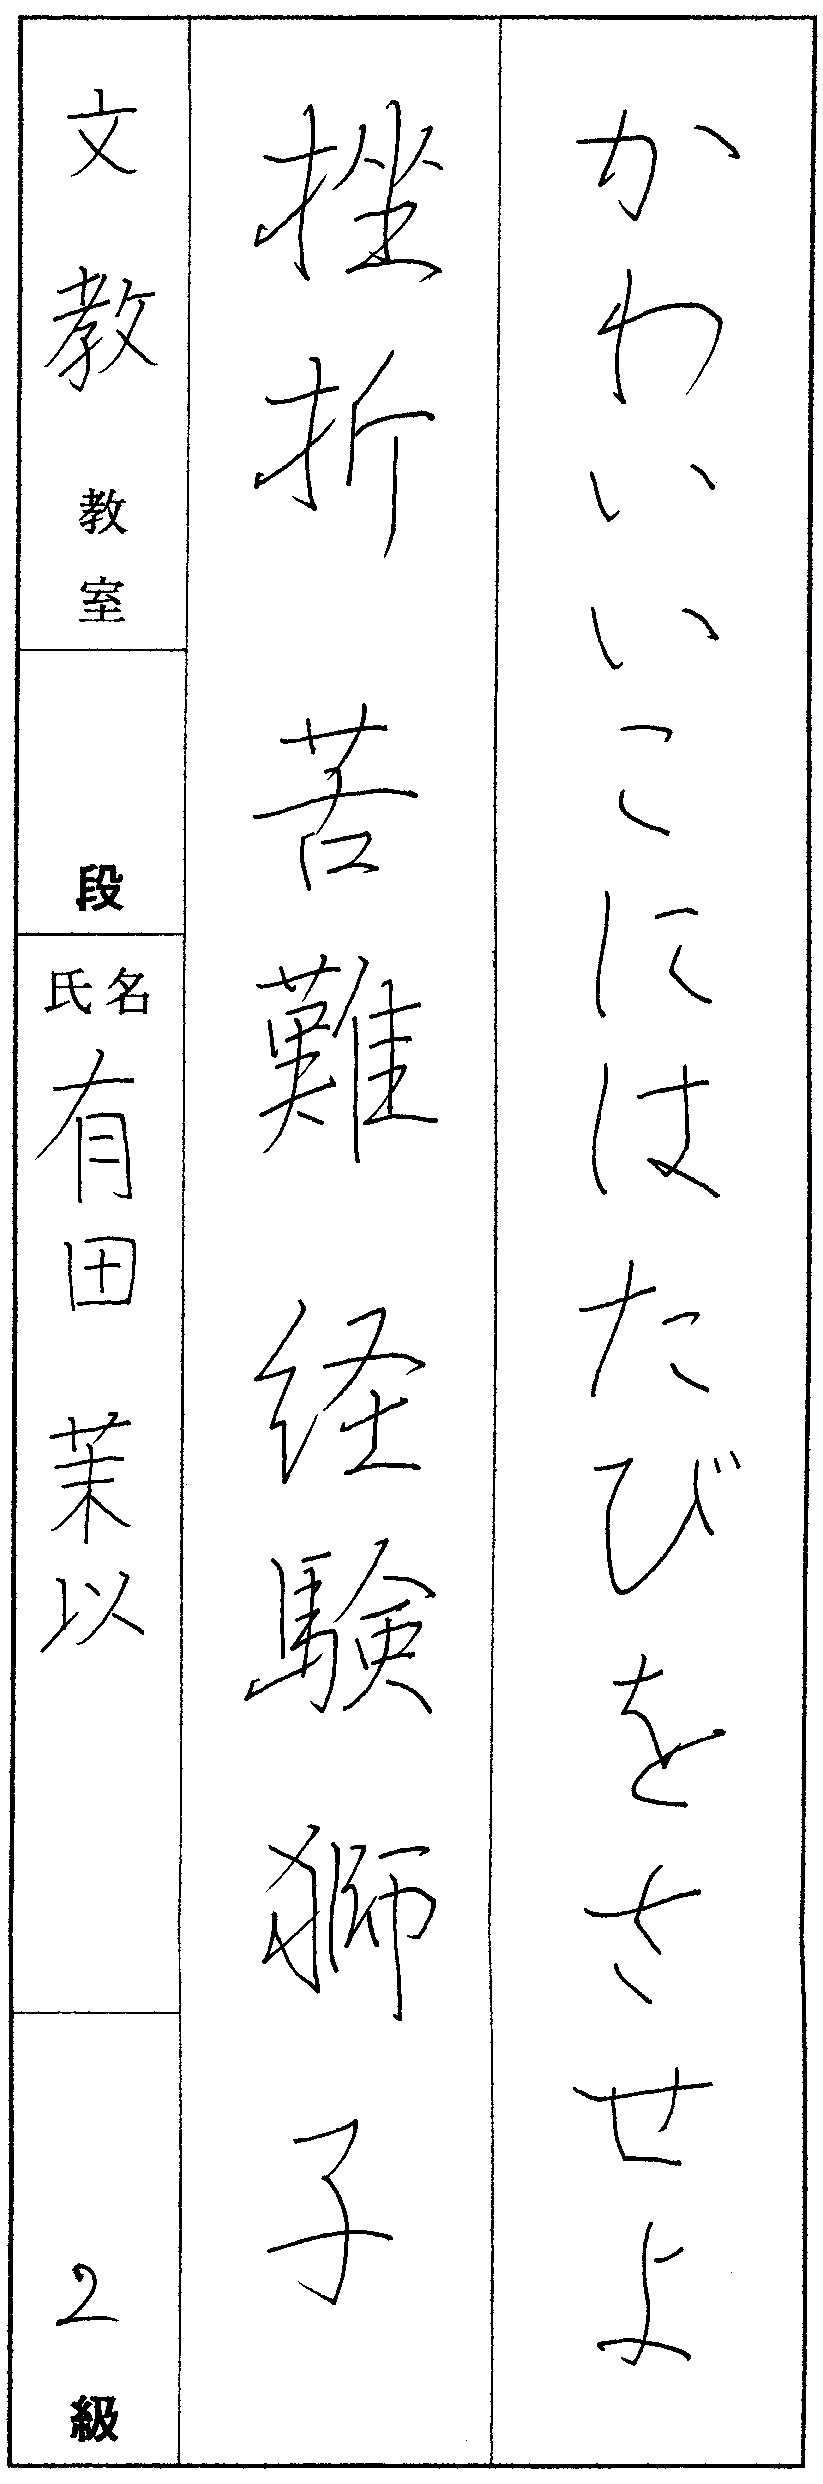 かわいいこにはたびをさせよ
挫折 苦難 経験 獅子
文教 教室
段
氏名 有田 茉以
2 級